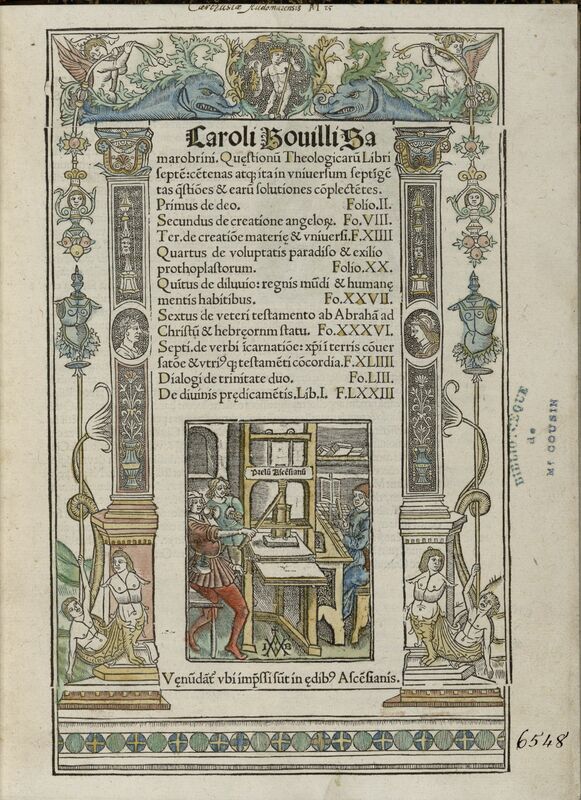 Caroli Bouilli Sa
marobrini. Quęstionū Theologicarū Libri
septē: cētenas atq̃ ita in vniuersum septigē
tas q̄stiōes & earū solutiones cōplectētes.
Primus de deo. Folio.II.
Secundus de creatione angeloꝝ. Fo.VIII.
Ter. de creatiōe materię & vniuersi. F.XIIII
Quartus de voluptatis paradiso & exilio
prothoplastorum. Folio.XX.
Quītus de diluuio: regnis mūdi & humanę
mentis habitibus. Fo.XXVII.
Sextus de veteri testamento ab Abrahā ad
Christū & hebręornm statu. Fo.XXXVI.
Septi. de verbi īcarnatiōe: xp̄i ī terris cōuer
satōe & vtriꝰq̃ testamēti cōcordia. F.XLIIII
Dialogi de trinitate duo. Fo.LIII.
De diuinis prędicamētis. Lib.I. F.LXXIII
Prelū Ascēsianū
I B
Vęnūdāt̄ vbi imp̄ssi sūt in ędibꝰ Ascēsianis.
BIBLIOTHEQUE
de
Mr COUSIN
6548